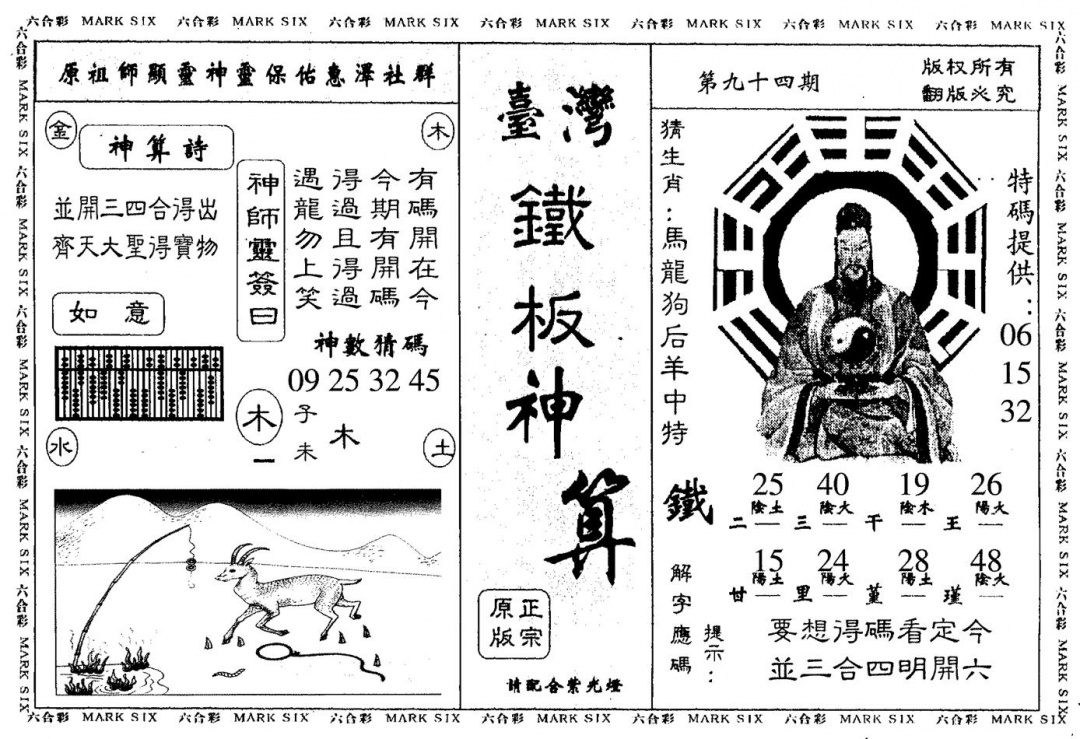 六合彩 MARK SIX 六合彩 MARK SIX 六合彩 MARK SIX 六合彩 MARK SIX 六合彩 MARK SIX 六合彩 MARK SIX 六合彩 MARK SIX
六合彩 MARK SIX 六合彩 MARK SIX 六合彩 MARK SIX 六合彩 MARK SIX 六合彩 MARK SIX
原祖師顯靈神靈保佑惠澤社群
金
神算詩
木
並開三四合得出
齊天大聖得寶物
如意
神師靈簽曰
有碼開在今
今期有開碼
得過且得過
遇龍勿上笑
神數猜碼
09 25 32 45
木
一
子
未
木
水
土
臺灣
鐵板神算
正宗
原版
請配合紫光燈
第九十四期
版权所有
翻版必究
猜生肖：馬龍狗后羊中特
特碼提供：
06
15
32
鐵
25 40 19 26
陰土 陰火 陰木 陽火
二 三 干 王
15 24 28 48
陽土 陽火 陽土 陰火
甘 里 堇 瑾
解字應碼
提示：
要想得碼看定今
並三合四明開六
六合彩 MARK SIX 六合彩 MARK SIX 六合彩 MARK SIX 六合彩 MARK SIX 六合彩 MARK SIX
六合彩 MARK SIX 六合彩 MARK SIX 六合彩 MARK SIX 六合彩 MARK SIX 六合彩 MARK SIX 六合彩 MARK SIX 六合彩 MARK SIX